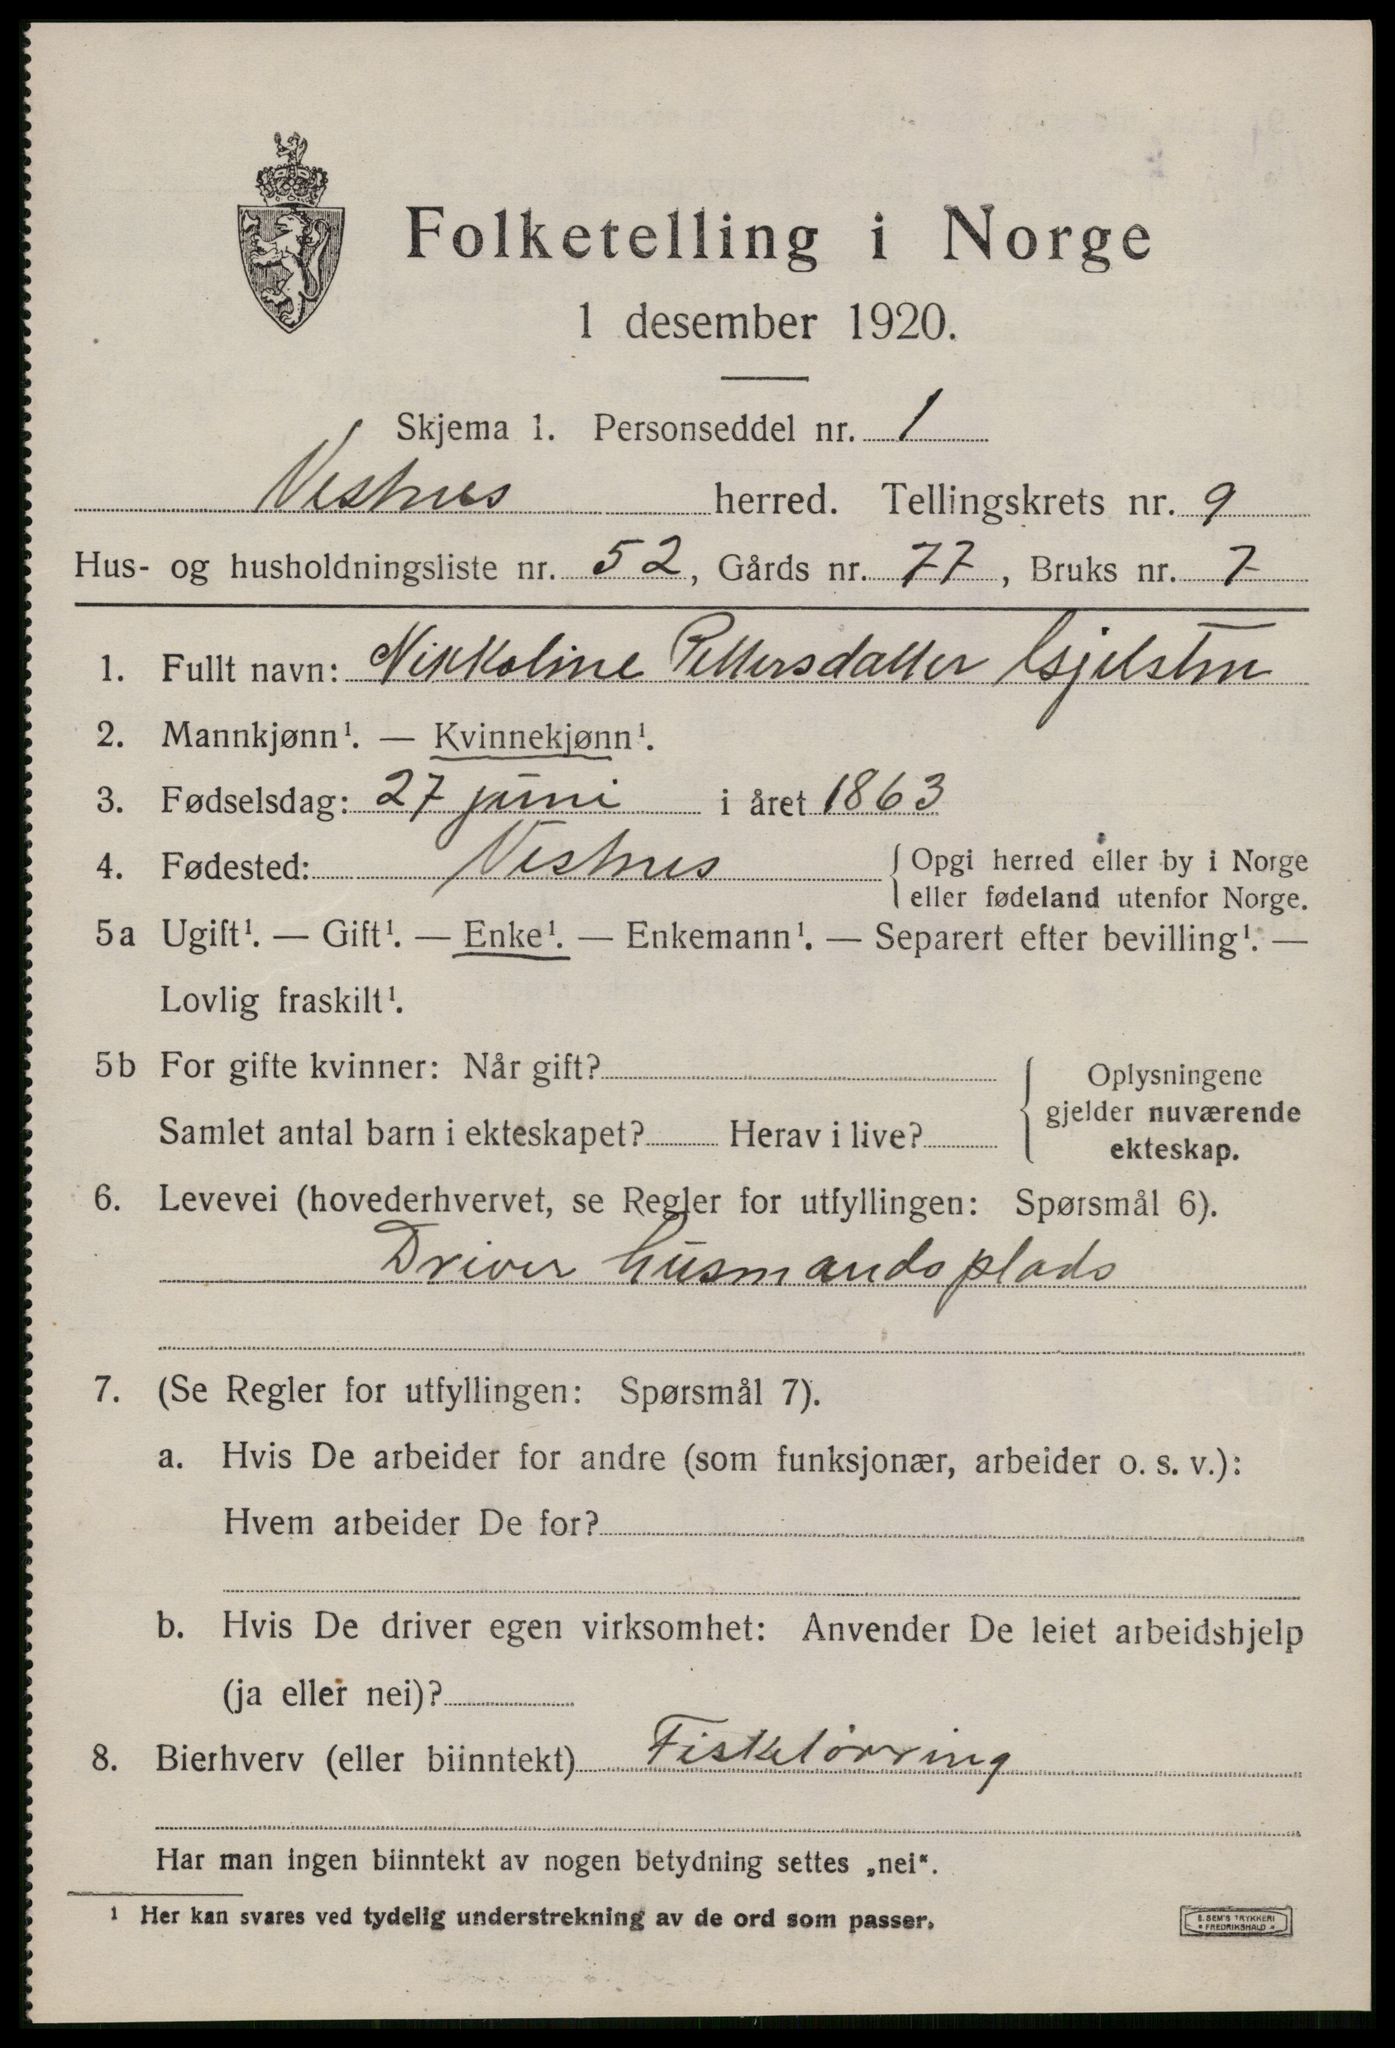 Folketelling i Norge
1 desember 1920.
Skjema 1. Personseddel nr. 1
Vestnes herred. Tellingskrets nr. 9
Hus- og husholdningsliste nr. 52, Gårds nr. 77, Bruks nr. 7
1. Fullt navn: Nikkoline Pettersdatter Gjelsten
2. Mannkjønn¹. — Kvinnekjønn¹.
3. Fødselsdag: 27 juni i året 1863
4. Fødested: Vestnes { Opgi herred eller by i Norge
eller fødeland utenfor Norge.
5a Ugift¹. — Gift¹. — Enke¹. — Enkemann¹. — Separert efter bevilling¹. —
Lovlig fraskilt¹.
5b For gifte kvinner: Når gift?
Samlet antal barn i ekteskapet? Herav i live?
{ Oplysningene
gjelder nuværende
ekteskap.
6. Levevei (hovederhvervet, se Regler for utfyllingen: Spørsmål 6).
Driver husmandsplads
7. (Se Regler for utfyllingen: Spørsmål 7).
a. Hvis De arbeider for andre (som funksjonær, arbeider o. s. v.):
Hvem arbeider De for?
b. Hvis De driver egen virksomhet: Anvender De leiet arbeidshjelp
(ja eller nei)?
8. Bierhverv (eller biinntekt) Fisketørring
Har man ingen biinntekt av nogen betydning settes „nei“.
¹ Her kan svares ved tydelig understrekning av de ord som passer.
E. SEM'S TRYKKERI
* FREDRIKSHALD *